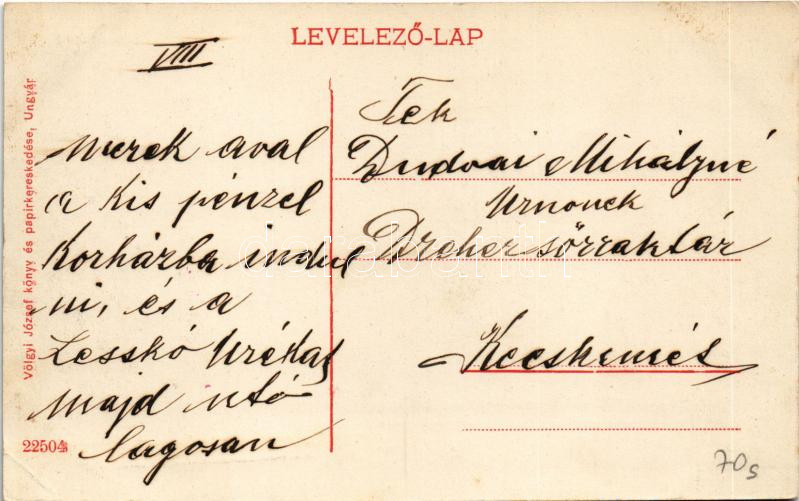 LEVELEZŐ-LAP
VIII
merek aval
a kis pénzel
Korházba indul
ni, és a
Lesskó Urékat
majd utó-
lagosan
Tek
Dudvai Mihályné
Urnonek
Dreher sörraktár
Kecskemét
Völgyi József könyv és papirkereskedése, Ungvár
22504
70s